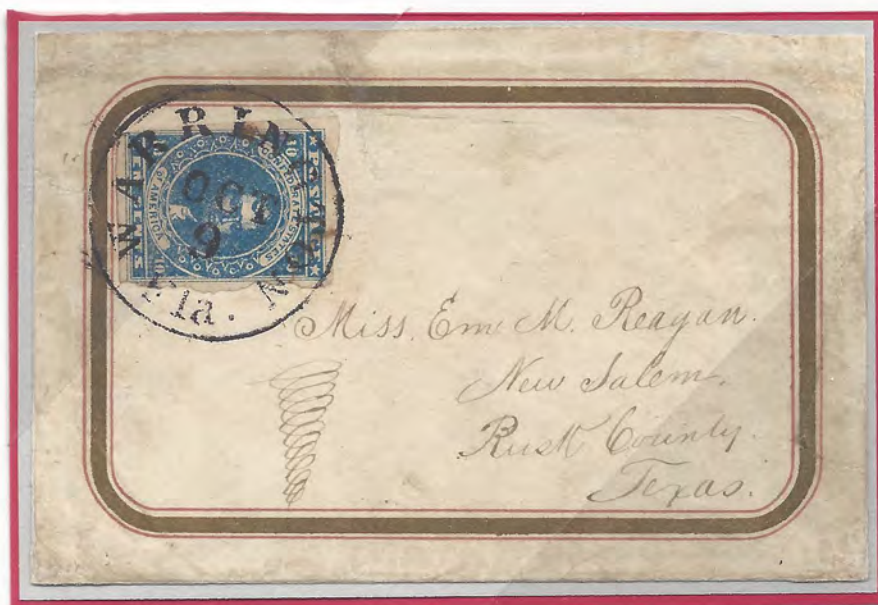 WARRINGTON
OCT
9
Fla.
POSTAGE
10
CONFEDERATE STATES
OF AMERICA
10
Miss. Em M. Reagan.
New Salem.
Rusk County.
Texas.